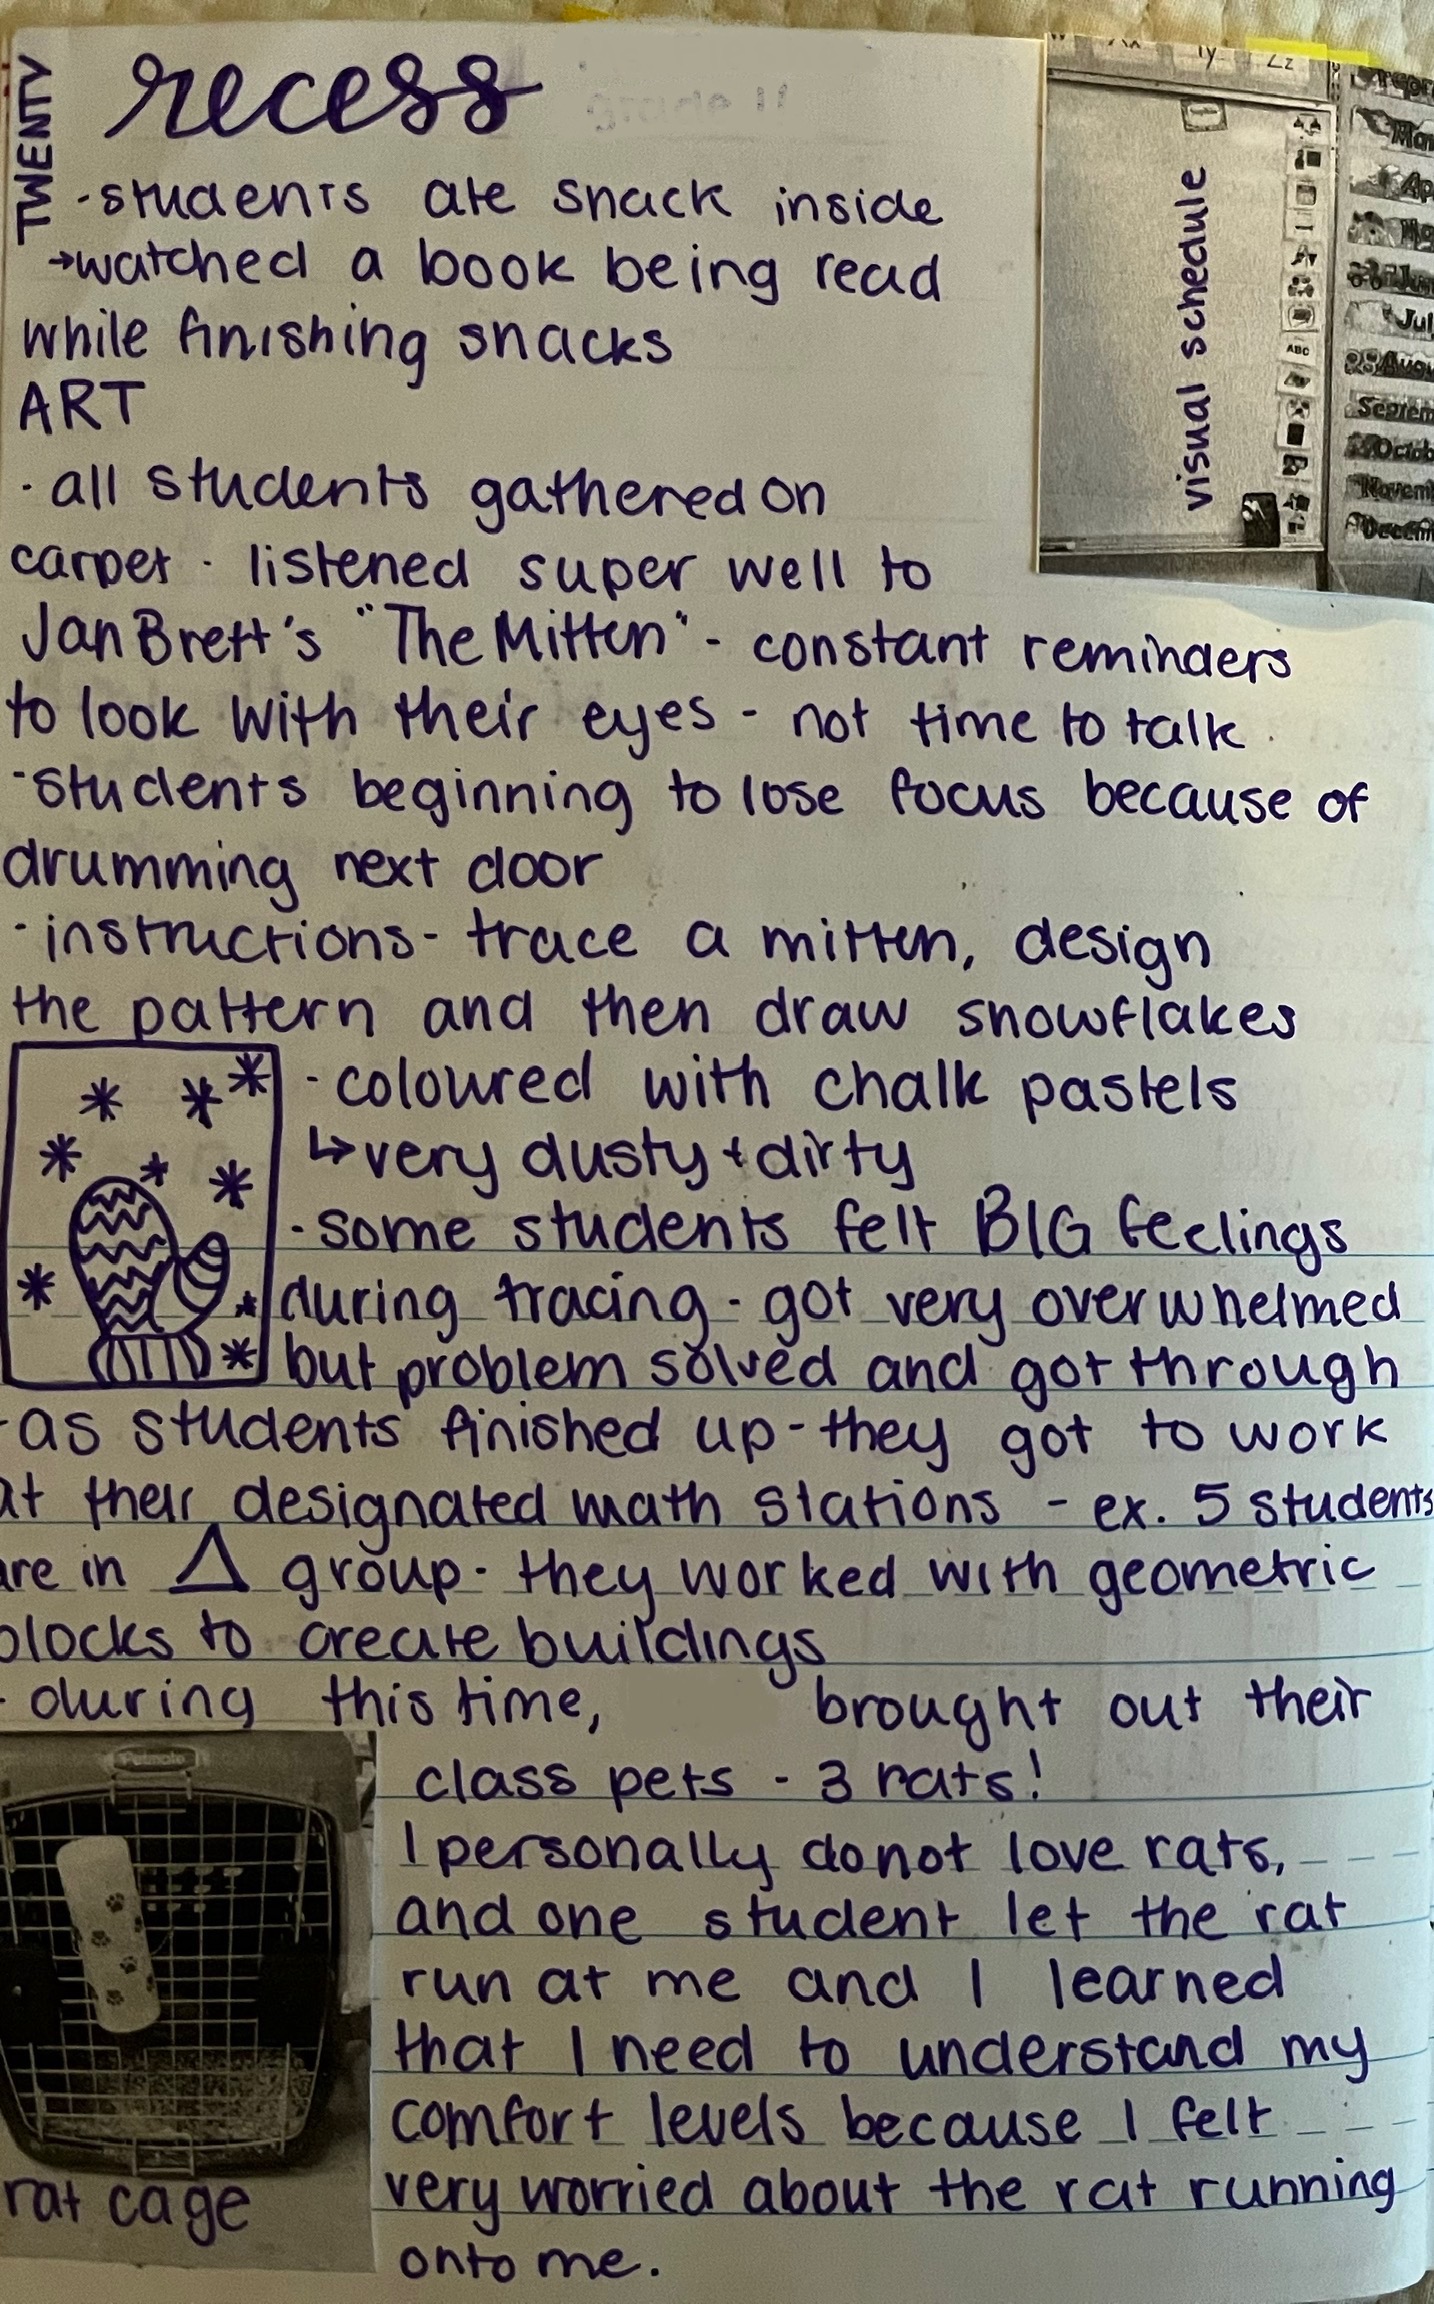 TWENTY
recess
-students ate snack inside
→watched a book being read
while finishing snacks
ART
· all students gathered on
carpet · listened super well to
Jan Brett's "The Mitten" - constant reminders
to look with their eyes - not time to talk
-students beginning to lose focus because of
drumming next door
· instructions - trace a mitten, design
the pattern and then draw snowflakes
· coloured with chalk pastels
↳ very dusty + dirty
· some students felt BIG feelings
during tracing - got very overwhelmed
but problem solved and got through
-as students finished up - they got to work
at their designated math stations - ex. 5 students
are in △ group - they worked with geometric
blocks to create buildings
- during this time, brought out their
class pets - 3 rats!
I personally do not love rats,
and one student let the rat
run at me and I learned
that I need to understand my
comfort levels because I felt
very worried about the rat running
onto me.
rat cage
Petmate
visual schedule
Zz
ABC